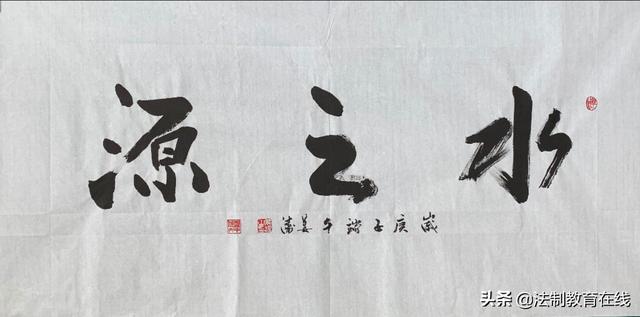 水之源
歲庚子端午
头条 @法制教育在线